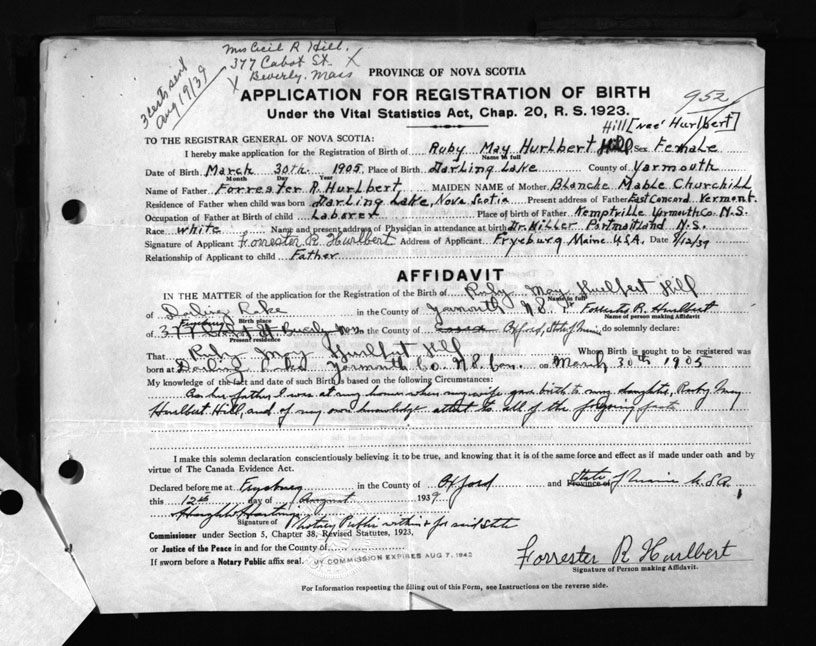 Mrs Cecil R Hill.
377 Cabot St. X
X Beverly. Mass
3 certs sent
Aug 19/39
PROVINCE OF NOVA SCOTIA
952
APPLICATION FOR REGISTRATION OF BIRTH
Under the Vital Statistics Act, Chap. 20, R. S. 1923.
Hill [nee Hurlbert]
TO THE REGISTRAR GENERAL OF NOVA SCOTIA:
I hereby make application for the Registration of Birth of Ruby May Hurlbert Hill Sex Female
Name in full
Date of Birth March 30th 1905 Place of Birth Darling Lake County of Yarmouth
Month Day Year
Name of Father Forrester R. Hurlbert, MAIDEN NAME of Mother Blanche Mable Churchill
Residence of Father when child was born Darling Lake, Nova Scotia Present address of Father East Concord Vermont.
Occupation of Father at Birth of child Laborer Place of birth of Father Kemptville Yarmouth Co. N.S.
Race White Name and present address of Physician in attendance at birth Dr. Miller Portmaitland N.S.
Signature of Applicant Forrester R Hurlbert Address of Applicant Fryeburg Maine U.S.A. Date 8/12/39
Relationship of Applicant to child Father
AFFIDAVIT
IN THE MATTER of the application for the Registration of the Birth of Ruby May Hurlbert Hill
Name in full
of Darling Lake in the County of Yarmouth N.S. I, Forrester R. Hurlbert
Birth place Name of person making Affidavit
Fryeburg
of 377 Cabot St Beverly Mass in the County of Essex Oxford, State of Maine do solemnly declare:
Present residence
That Ruby May Hurlbert Hill Whose Birth is sought to be registered was
born at Darling Lake Yarmouth Co. N.S. Can. on March 30th 1905
My knowledge of the fact and date of such Birth is based on the following Circumstances:
As her father I was at my home when my wife gave birth to my daughter, Ruby May
Hurlbert Hill, and of my own knowledge attest to all of the forgoing facts
I make this solemn declaration conscientiously believing it to be true, and knowing that it is of the same force and effect as if made under oath and by
virtue of The Canada Evidence Act.
Declared before me at Fryeburg in the County of Oxford and Province of State of Maine U.S.A.
this 12th day of August 1939
Notary Public within & for said State
Signature of
Commissioner under Section 5, Chapter 38, Revised Statutes, 1923,
or Justice of the Peace in and for the County of
If sworn before a Notary Public affix seal. MY COMMISSION EXPIRES AUG 7, 1942
Forrester R Hurlbert
Signature of Person making Affidavit.
For Information respecting the filling out of this Form, see Instructions on the reverse side.